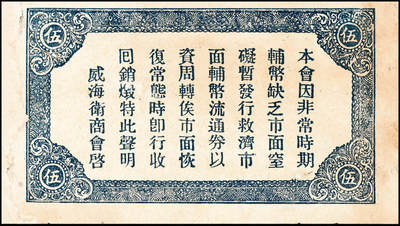 伍
伍
本會因非常時期
輔幣缺乏市面窒
礙暫發行救濟市
面輔幣流通券以
資周轉俟市面恢
復常態時卽行收
囘銷燬特此聲明
威海衛商會啓
伍
伍